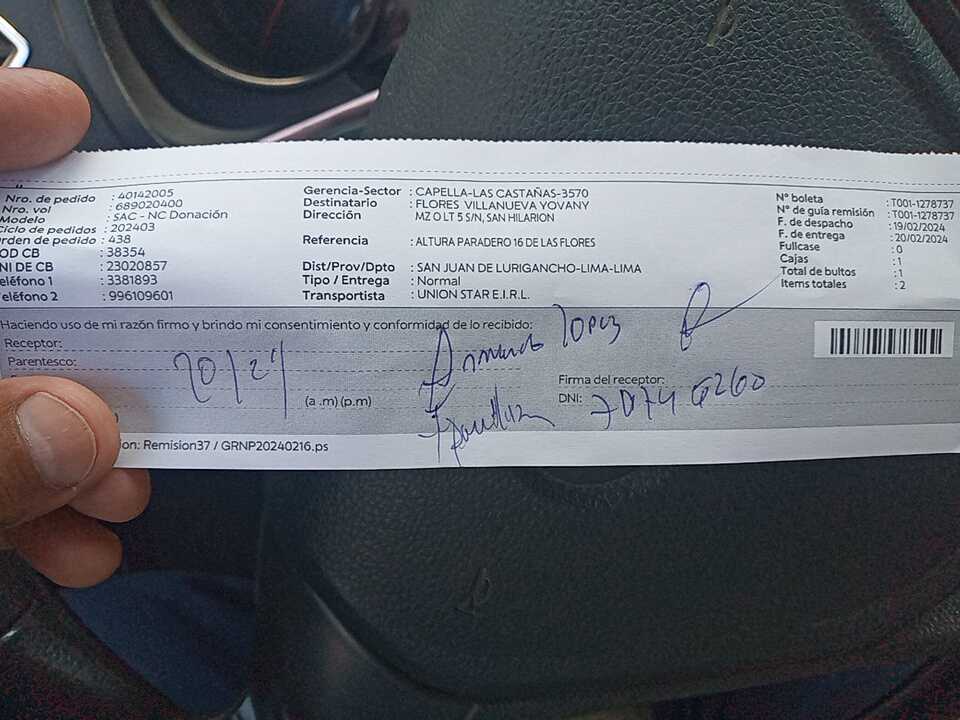 Nro. de pedido : 40142005
Nro. vol : 689020400
Modelo : SAC - NC Donación
Ciclo de pedidos : 202403
rden de pedido : 438
OD CB : 38354
NI DE CB : 23020857
eléfono 1 : 3381893
eléfono 2 : 996109601
Gerencia-Sector : CAPELLA-LAS CASTAÑAS-3570
Destinatario : FLORES VILLANUEVA YOVANY
Dirección MZ O LT 5 S/N, SAN HILARION
Referencia : ALTURA PARADERO 16 DE LAS FLORES
Dist/Prov/Dpto : SAN JUAN DE LURIGANCHO-LIMA-LIMA
Tipo / Entrega : Normal
Transportista : UNION STAR E.I.R.L.
N° boleta : T001-1278737
N° de guía remisión : T001-1278737
F. de despacho : 19/02/2024
F. de entrega : 20/02/2024
Fullcase : 0
Cajas : 1
Total de bultos : 1
Items totales : 2
Haciendo uso de mi razón firmo y brindo mi consentimiento y conformidad de lo recibido:
Receptor:
Armando lopez
Parentesco:
20/2/
(a .m) (p.m)
Firma del receptor:
DNI:
ion: Remision37 / GRNP20240216.ps